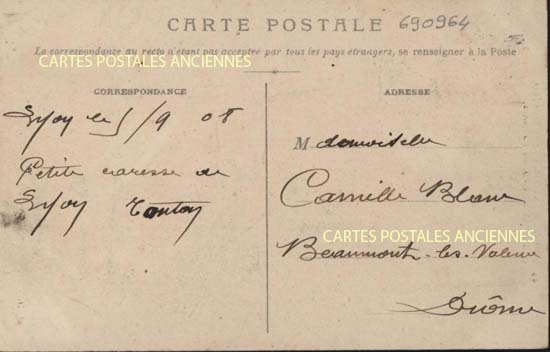 CARTE POSTALE 690964
La correspondance au recto n'étant pas acceptée par tous les pays étrangers, se renseigner à la Poste
CARTES POSTALES ANCIENNES
CORRESPONDANCE
Lyon le 5/9 08
Petite caresse de
Lyon Tonton
ADRESSE
Mdemoiselle
Camille Blanc
CARTES POSTALES ANCIENNES
Beaumont-les-Valence
Drôme